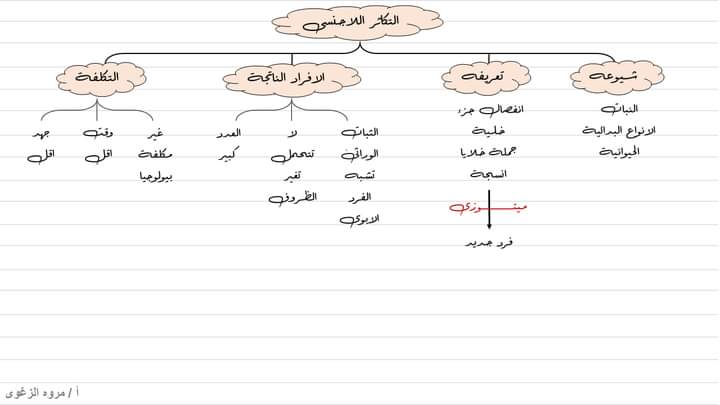 التكاثر اللاجنسى
شيوعه
تعريفه
الافراد الناتجة
التكلفة
النبات
الانواع البدائية
الحيوانية
انفصال جزء
خلية
جملة خلايا
انسجة
ميتوزى
فرد جديد
الثبات
الوراثى
تشبه
الفرد
الابوى
لا
تتحمل
تغير
الظروف
العدد
كبير
غير
مكلفة
بيولوجيا
وقت
اقل
جهد
اقل
أ / مروه الزغوى